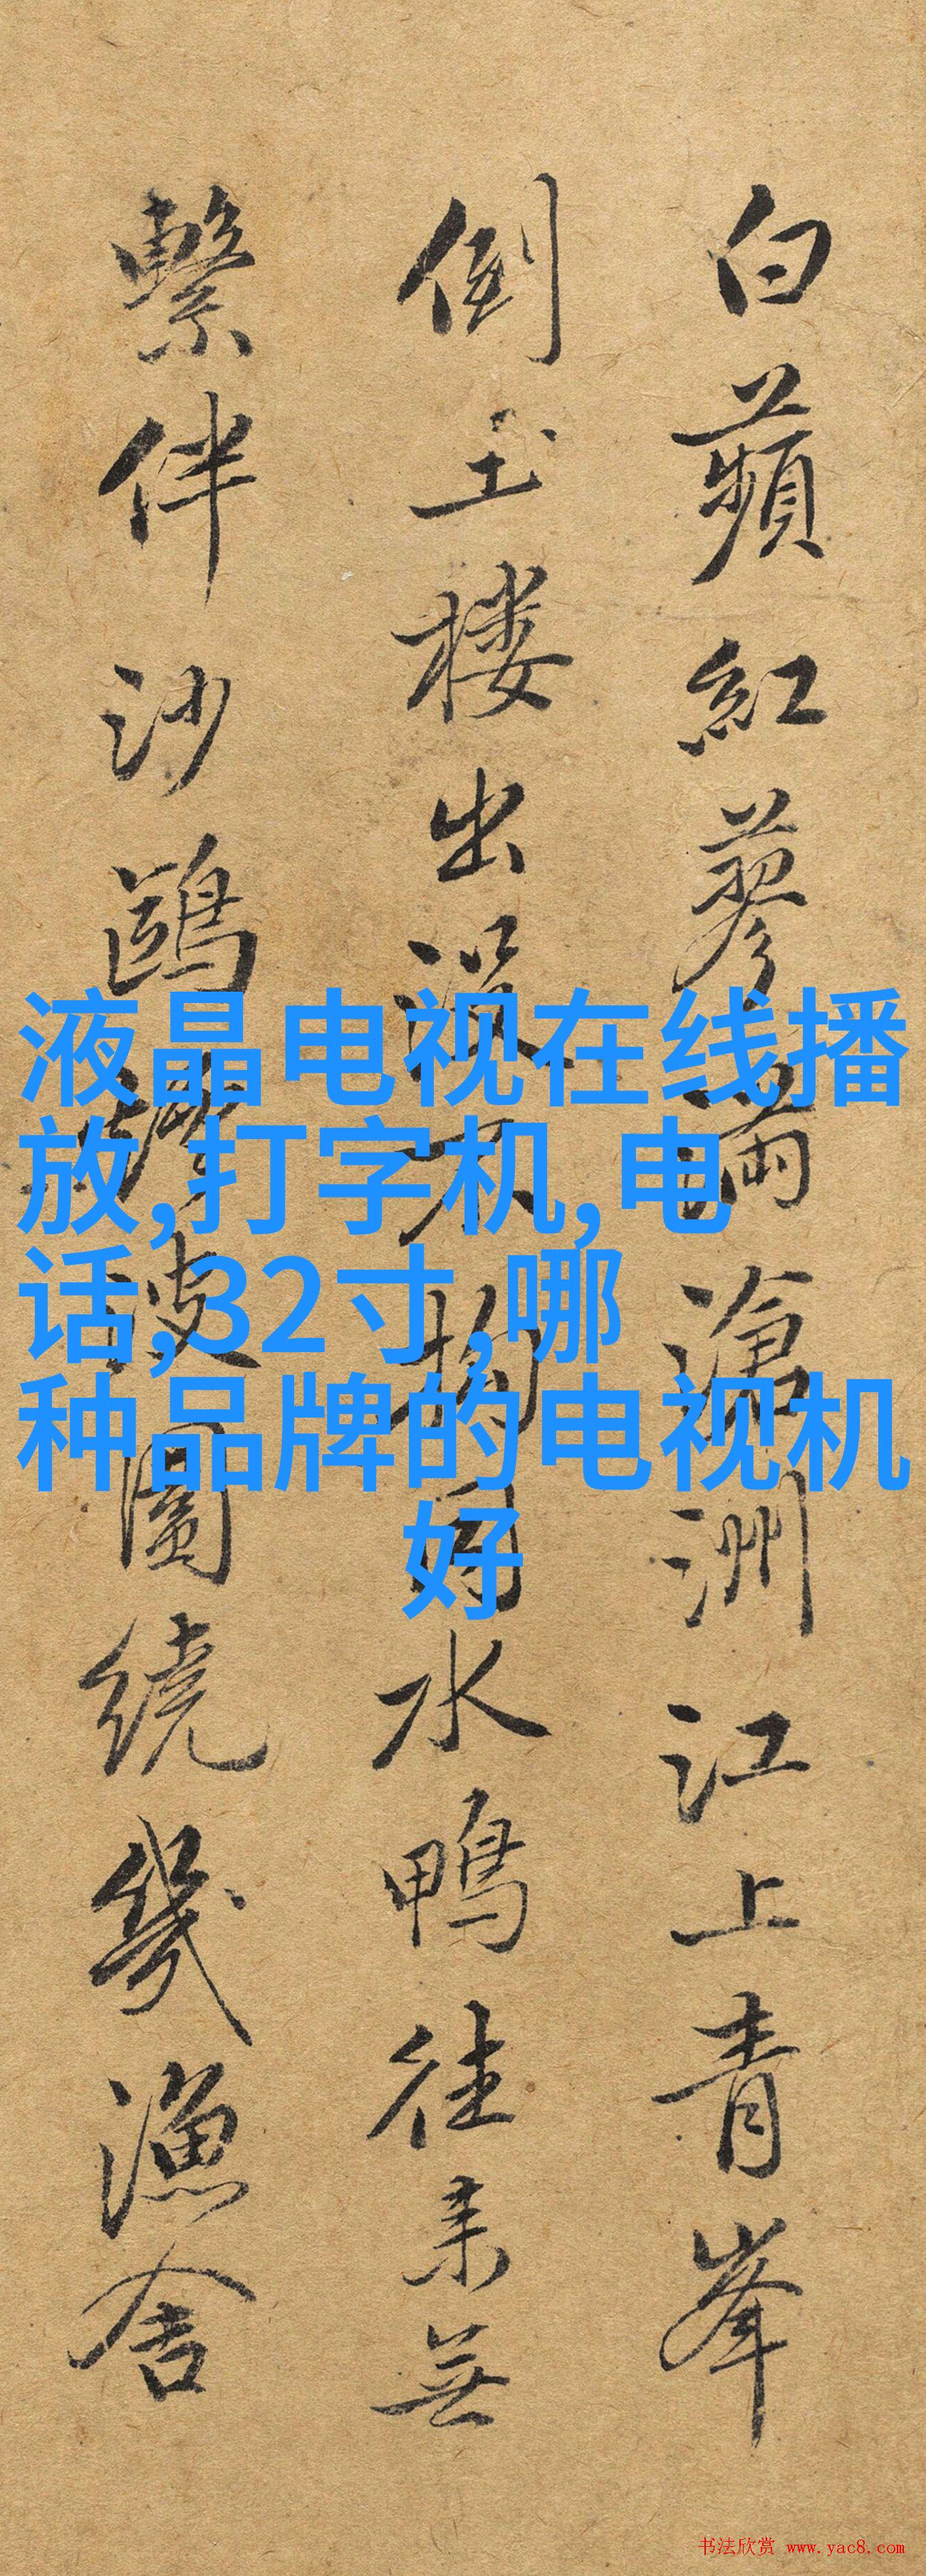 白蘋紅蓼滿滄洲江上青峯
倒玉楼出没不拘同水鴨往来無
繫伴沙鷗波圓繞幾漁舍
液晶电视在线播
放,打字机,电
话,32寸,哪
种品牌的电视机
好
书法欣赏 www.yac8.com